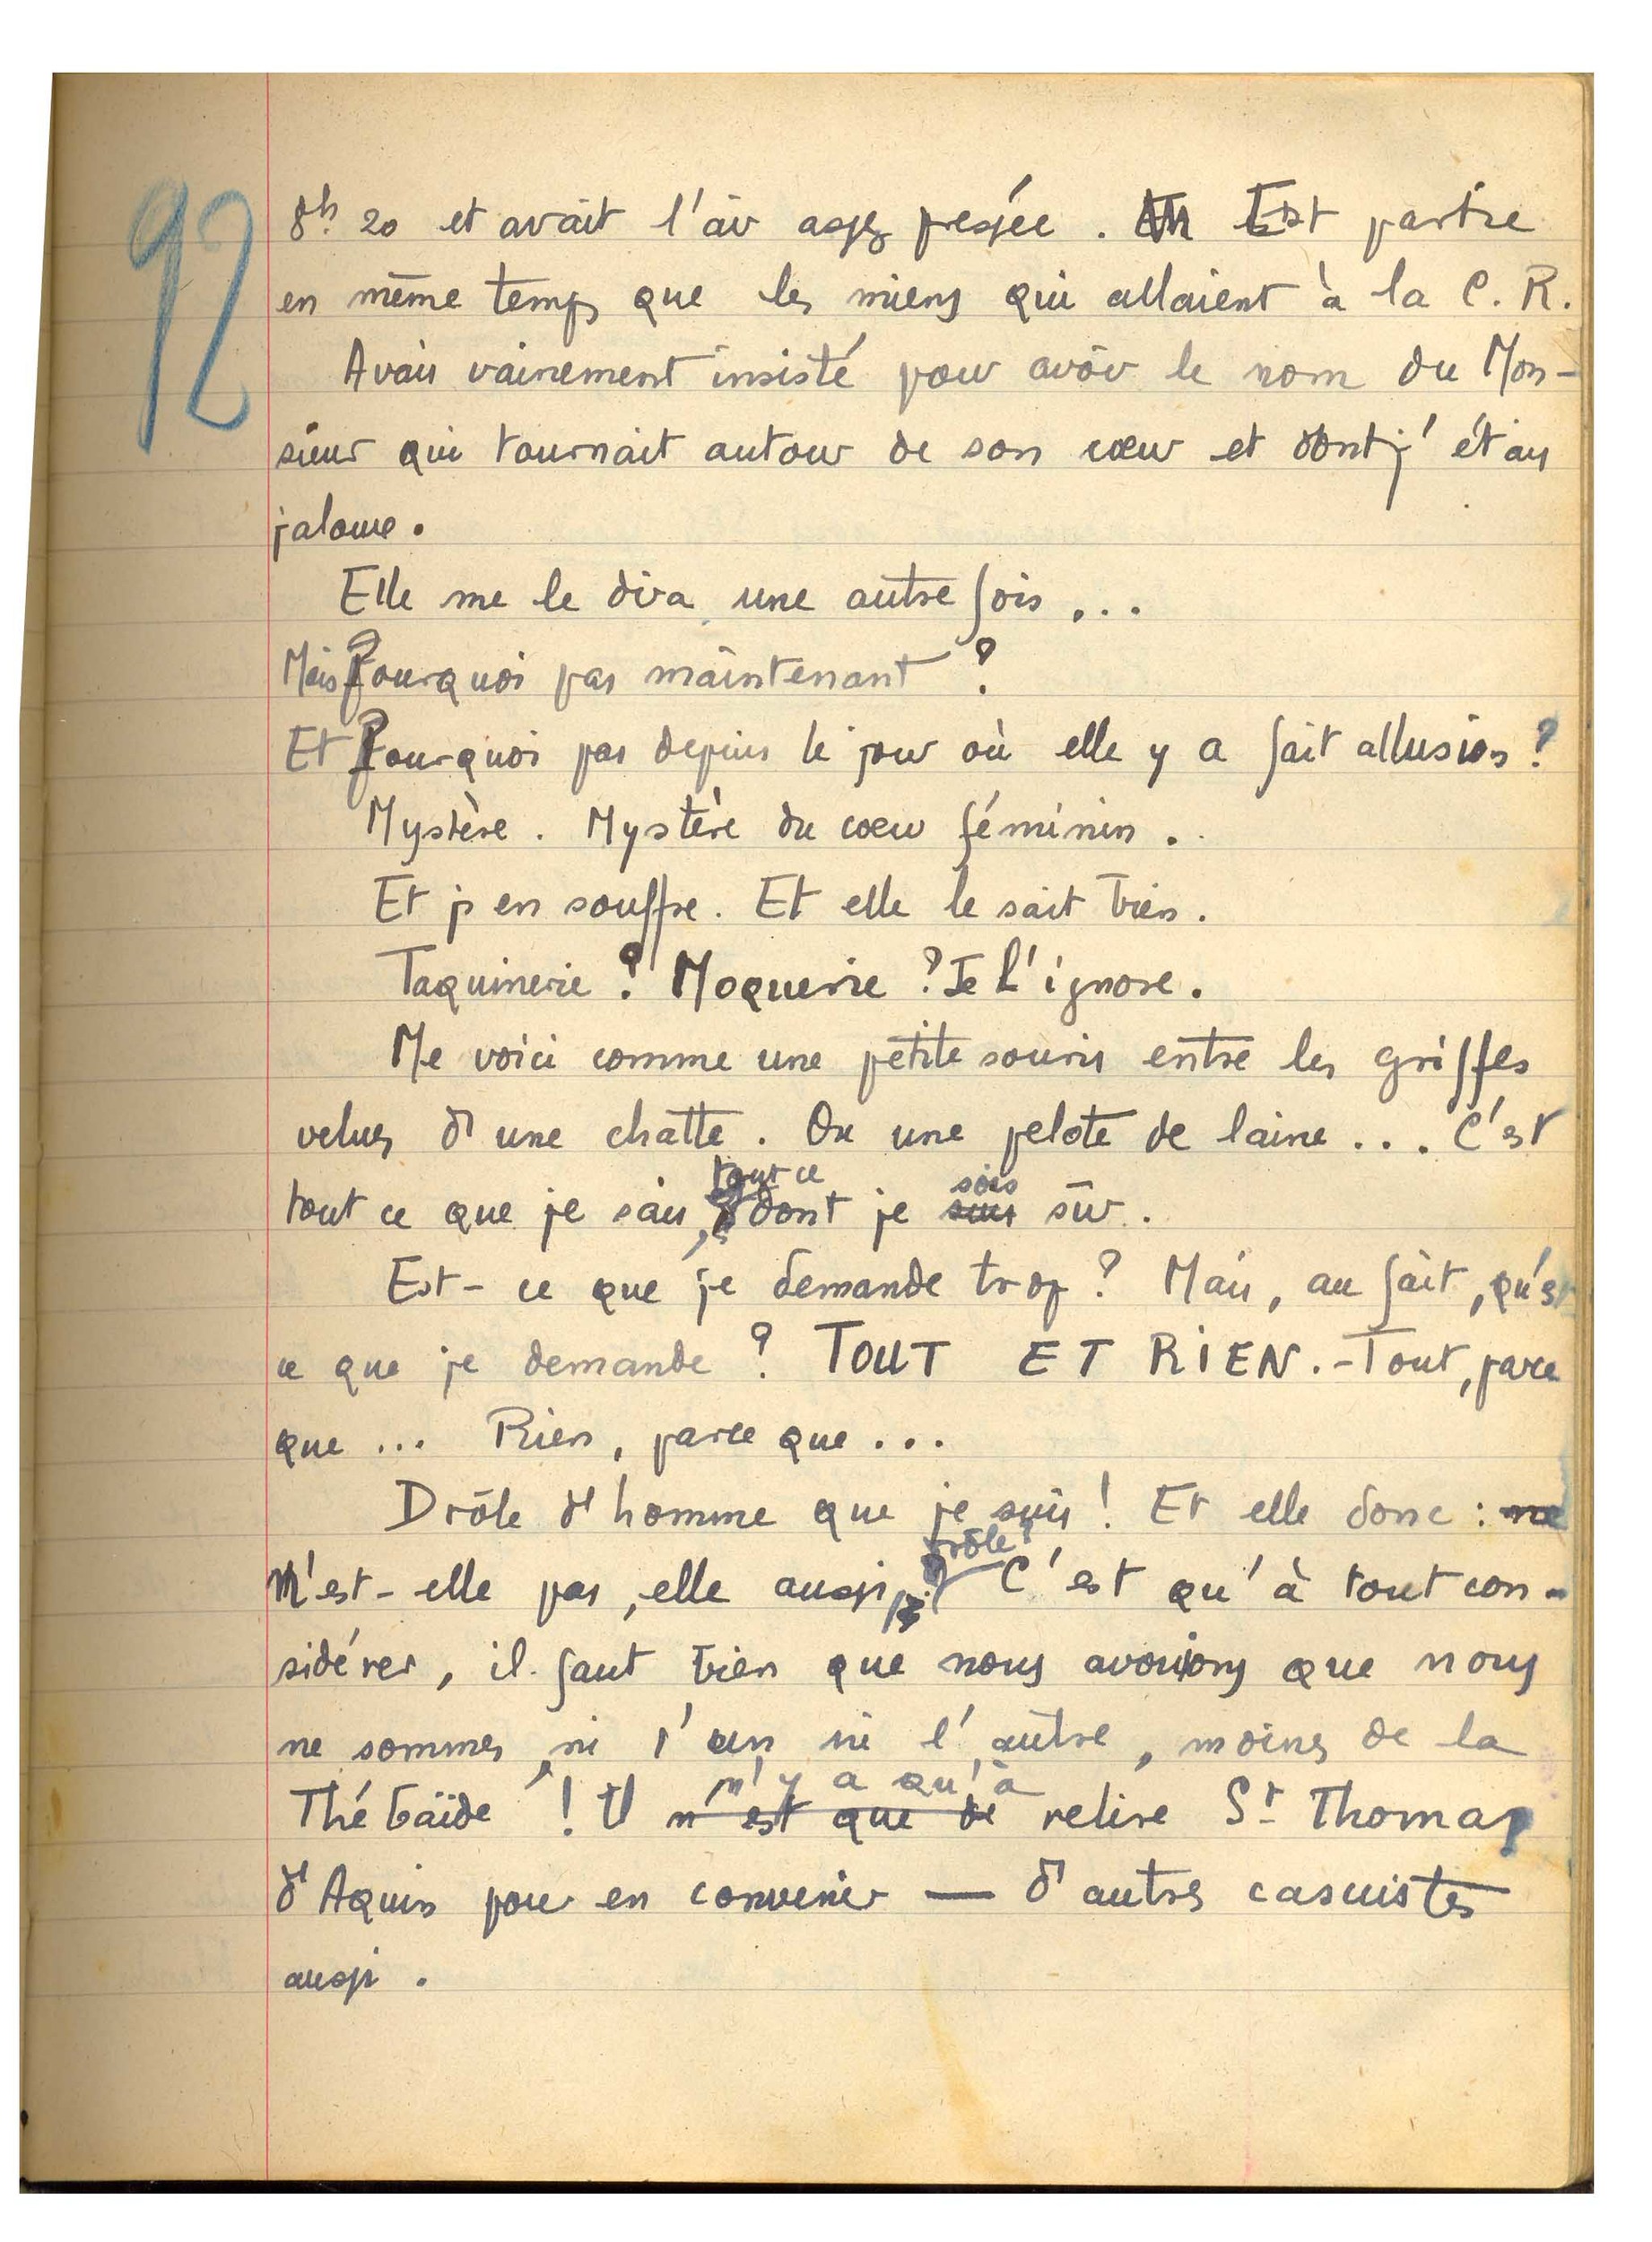 92
8h 20 et avait l'air assez pressée. Est partie
en même temps que les miens qui allaient à la C. R.
Avais vainement insisté pour avoir le nom du Mon-
sieur qui tournait autour de son cœur et dont j'étais
jaloux.
Elle me le dira une autre fois...
Mais Pourquoi pas maintenant ?
Et Pourquoi pas depuis le jour où elle y a fait allusion ?
Mystère. Mystère du cœur féminin.
Et j'en souffre. Et elle le sait bien.
Taquinerie ? Moquerie ? Je l'ignore.
Me voici comme une petite souris entre les griffes
velues d'une chatte. Ou une pelote de laine... C'est
tout ce
sois
tout ce que je sais, dont je suis sûr.
Est-ce que je demande trop ? Mais, au fait, qu'est
ce que je demande ? TOUT ET RIEN. - Tout, parce
que ... Rien, parce que...
Drôle d'homme que je suis ! Et elle donc : ne
drôle
N'est-elle pas, elle aussi, ? C'est qu'à tout con-
sidérer, il faut bien que nous avouions que nous
ne sommes, ni l'un ni l'autre, moines de la
n'y a qu'à
Thébaïde ! Il n'est que de relire St Thomas
d'Aquin pour en convenir — d'autres casuistes
aussi.